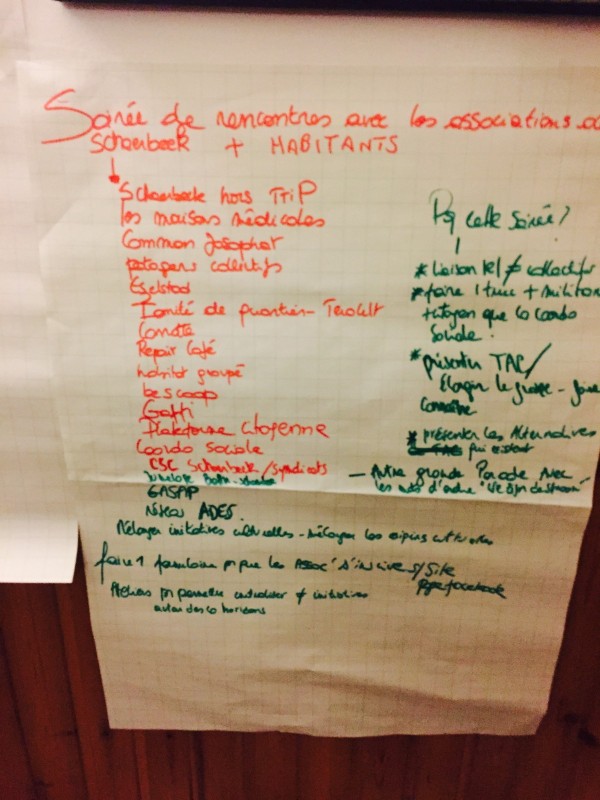 Soirée de rencontres avec les associations de
Schaerbeek + HABITANTS
Schaerbeek hors TriP
les maisons médicales
Common Josaphat
potagers collectifs
Eselstad
Comité de quartier - Terdelt
Comette
Repair Café
habitat groupé
bescoop
Gaffi
Plateforme Citoyenne
Coordo sociale
CSC Schaerbeek/syndicats
GASAP
ADES
Mélanger initiatives culturelles - mélanger les
faire 1 formulaire pr que les Assoc' s'inscrivent s/ site
page facebook
Ateliers pr permettre ≠ initiatives
horizons
Pq cette soirée?
* liaison ≠ collectifs
* faire 1 truc + militant
+ citoyen que la coordo
sociale.
* présenter TAC/
Elargir le groupe - faire
connaître
* présenter les Alternatives
qui existent
— Autre grande Parade Avec
les mots d'ordre